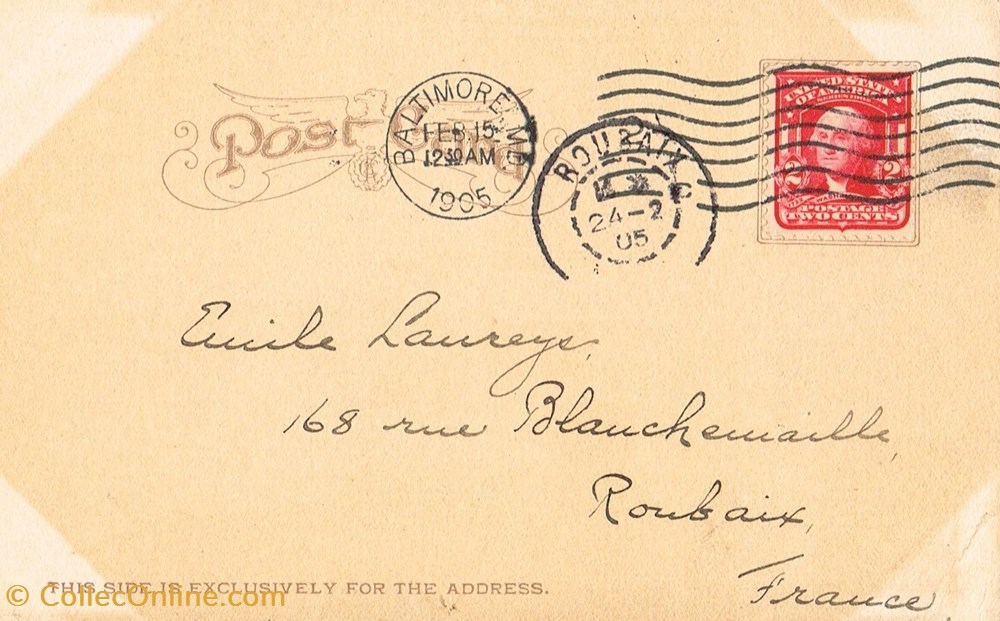 Post Card
BALTIMORE, MD.
FEB 15
12 30 AM
1905
ROUBAIX
24-2
05
UNITED STATES
OF AMERICA
SERIES 1902
2 2
POSTAGE
TWO CENTS
Emile Laureys,
168 rue Blanchemaille,
Roubaix,
France
THIS SIDE IS EXCLUSIVELY FOR THE ADDRESS.
© CollecOnline.com